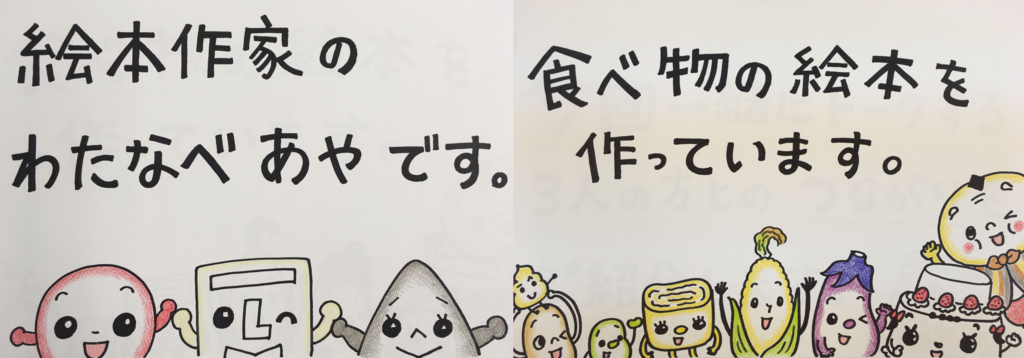 絵本作家の
わたなべ あや です。
食べ物の絵本を
作っています。